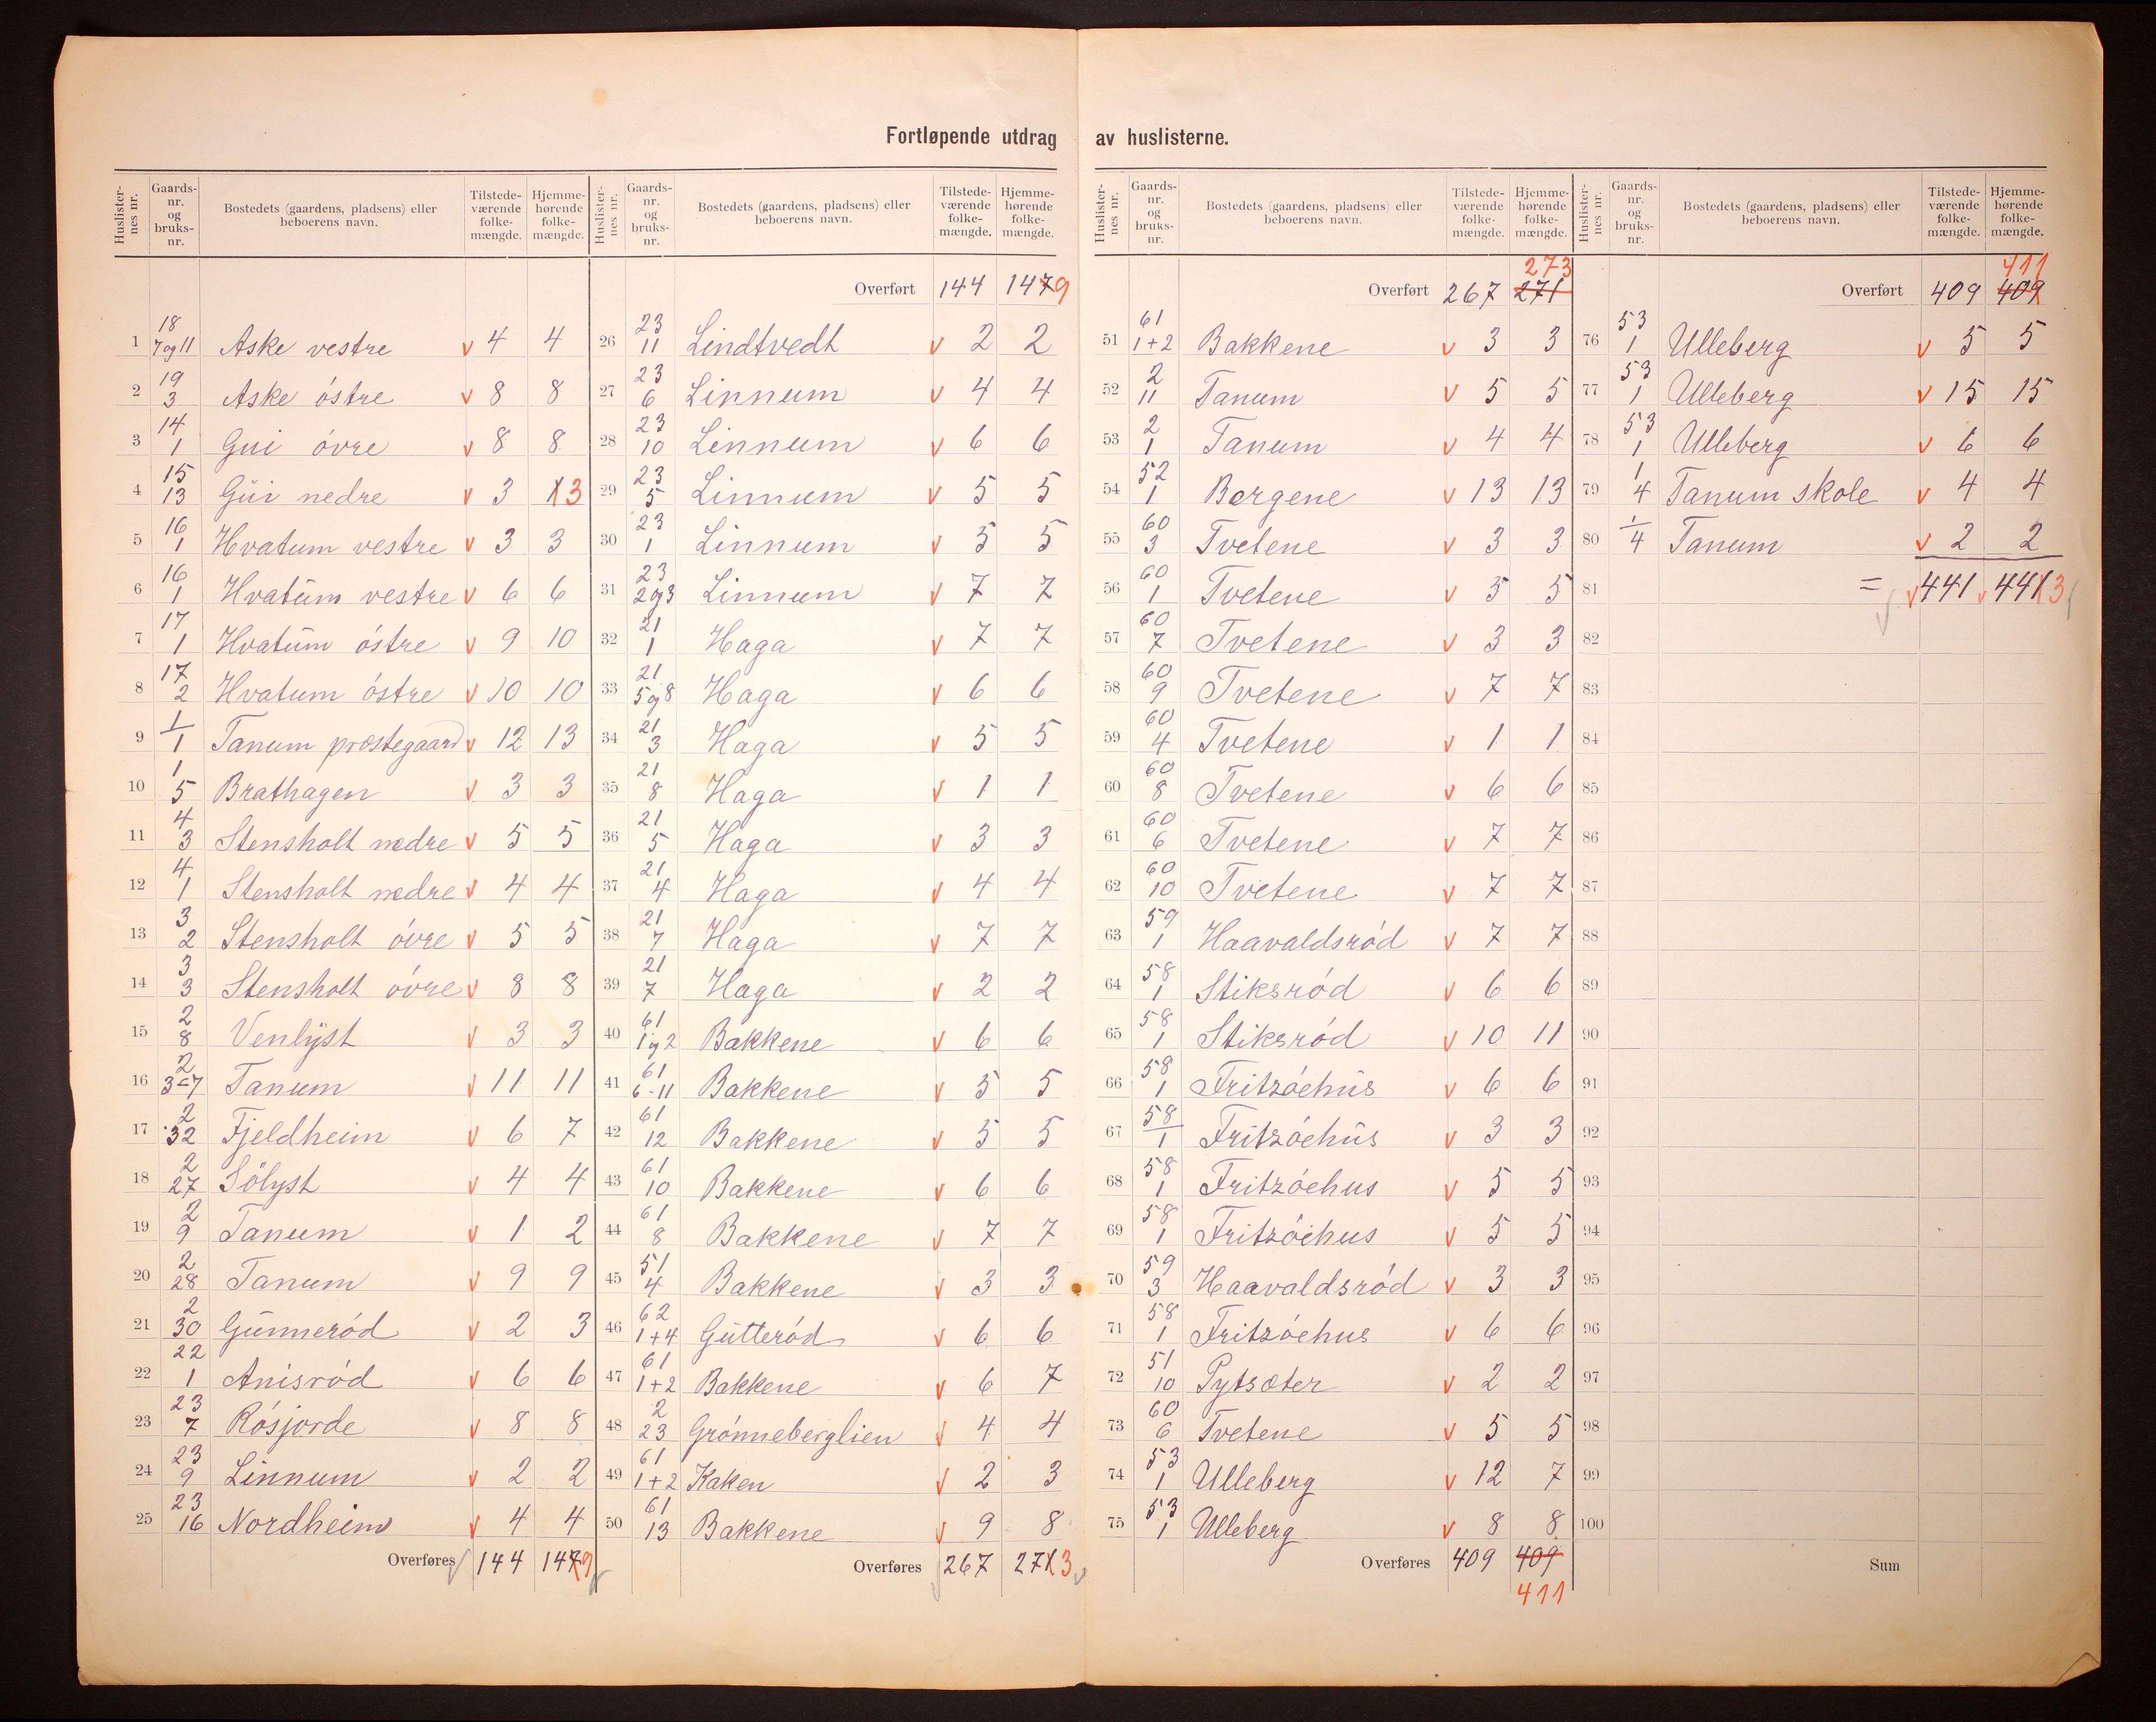 Fortløpende utdrag av huslisterne.
Huslister-nes nr. | Gaards-nr. og bruks-nr. | Bostedets (gaardens, pladsens) eller beboerens navn. | Tilstede-værende folke-mængde. | Hjemme-hørende folke-mængde.
1 18 7 og 11 Aske vestre v 4 4
2 19 3 Aske östre v 8 8
3 14 1 Gui övre v 8 8
4 15 13 Gui nedre v 3 3
5 16 1 Hvatum vestre v 3 3
6 16 1 Hvatum vestre v 6 6
7 17 1 Hvatum östre v 9 10
8 17 2 Hvatum östre v 10 10
9 1 1 Tanum prostegaard v 12 13
10 1 5 Brathagen v 3 3
11 4 3 Stensholt nedre v 5 5
12 4 1 Stensholt nedre v 4 4
13 3 2 Stensholt övre v 5 5
14 3 3 Stensholt övre v 8 8
15 2 8 Venlyst v 3 3
16 2 3=7 Tanum v 11 11
17 2 32 Fjeldheim v 6 7
18 2 27 Sölyst v 4 4
19 2 9 Tanum v 1 2
20 2 28 Tanum v 9 9
21 2 30 Gunneröd v 2 3
22 22 1 Anisröd v 6 6
23 23 7 Rösjorde v 8 8
24 23 9 Linnum v 2 2
25 23 16 Nordheim v 4 4
Overføres 144 1479
Huslister-nes nr. | Gaards-nr. og bruks-nr. | Bostedets (gaardens, pladsens) eller beboerens navn. | Tilstede-værende folke-mængde. | Hjemme-hørende folke-mængde.
Overført 144 1479
26 23 11 Lindtvedt v 2 2
27 23 6 Linnum v 4 4
28 23 10 Linnum v 6 6
29 23 5 Linnum v 5 5
30 23 1 Linnum v 5 5
31 23 2 og 3 Linnum v 7 7
32 21 1 Haga v 7 7
33 21 5 og 8 Haga v 6 6
34 21 3 Haga v 5 5
35 21 8 Haga v 1 1
36 21 5 Haga v 3 3
37 21 4 Haga v 4 4
38 21 7 Haga v 7 7
39 21 7 Haga v 2 2
40 61 1 og 2 Bakkene v 6 6
41 61 6-11 Bakkene v 5 5
42 61 12 Bakkene v 5 5
43 61 10 Bakkene v 6 6
44 61 8 Bakkene v 7 7
45 51 4 Bakkene v 3 3
46 62 1+4 Gutteröd v 6 6
47 61 1+2 Bakkene v 6 7
48 2 23 Grönneberglien v 4 4
49 61 1+2 Kaken v 2 3
50 61 13 Bakkene v 9 8
Overføres 267 2713
Huslister-nes nr. | Gaards-nr. og bruks-nr. | Bostedets (gaardens, pladsens) eller beboerens navn. | Tilstede-værende folke-mængde. | Hjemme-hørende folke-mængde.
273
Overført 267 271
51 61 1+2 Bakkene v 3 3
52 2 11 Tanum v 5 5
53 2 1 Tanum v 4 4
54 52 1 Bergene v 13 13
55 60 3 Tvetene v 3 3
56 60 1 Tvetene v 5 5
57 60 7 Tvetene v 3 3
58 60 9 Tvetene v 7 7
59 60 4 Tvetene v 1 1
60 60 8 Tvetene v 6 6
61 60 6 Tvetene v 7 7
62 60 10 Tvetene v 7 7
63 59 1 Haavaldsröd v 7 7
64 58 1 Stiksröd v 6 6
65 58 1 Stiksröd v 10 11
66 58 1 Fritzöehus v 6 6
67 58 1 Fritzöehus v 3 3
68 58 1 Fritzöehus v 5 5
69 58 1 Fritzöehus v 5 5
70 59 3 Haavaldsröd v 3 3
71 58 1 Fritzöehus v 6 6
72 51 10 Pytsæter v 2 2
73 60 6 Tvetene v 5 5
74 53 1 Ulleberg v 12 7
75 53 1 Ulleberg v 8 8
Overføres 409 409
411
Huslister-nes nr. | Gaards-nr. og bruks-nr. | Bostedets (gaardens, pladsens) eller beboerens navn. | Tilstede-værende folke-mængde. | Hjemme-hørende folke-mængde.
411
Overført 409 409
76 53 1 Ulleberg v 5 5
77 53 1 Ulleberg v 15 15
78 53 1 Ulleberg v 6 6
79 1 4 Tanum skole v 4 4
80 1 4 Tanum v 2 2
81 = v 441 v 4413
82
83
84
85
86
87
88
89
90
91
92
93
94
95
96
97
98
99
100
Sum